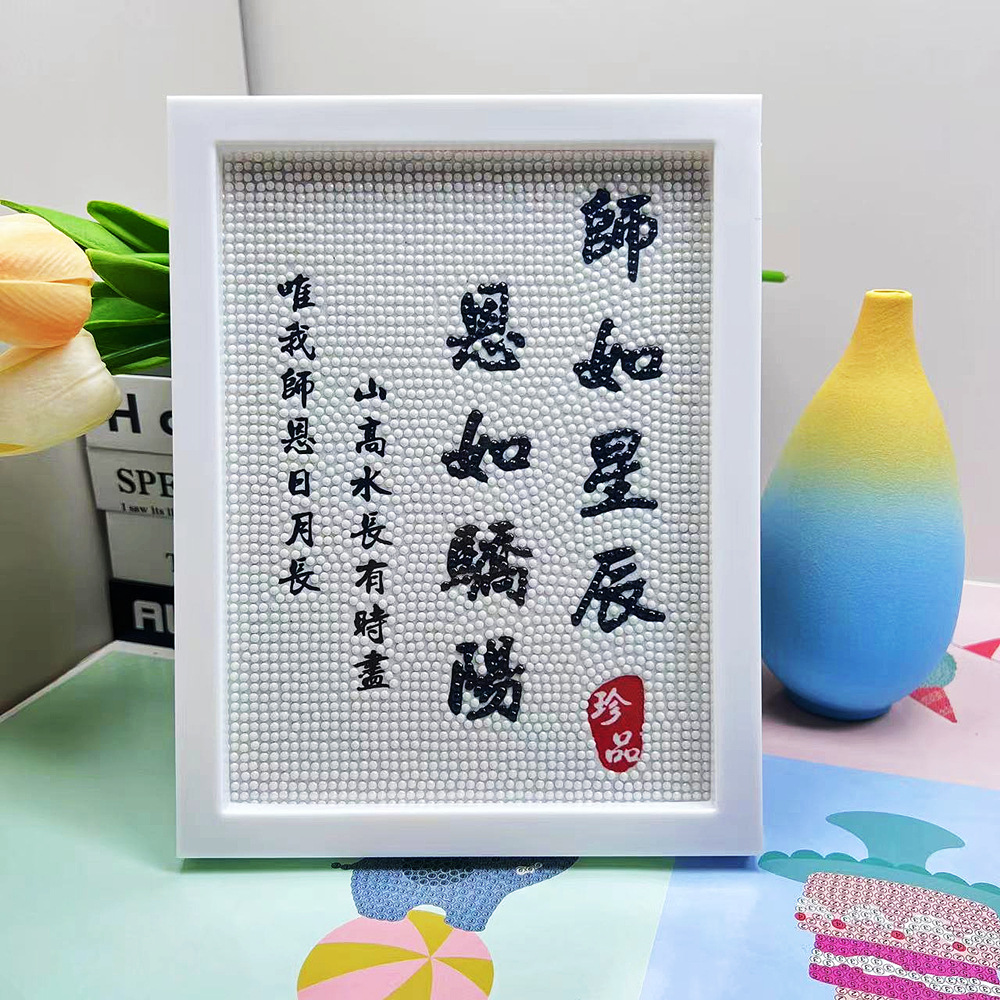 師如星辰
恩如驕陽
山高水長有時盡
唯我師恩日月長
珍品
SPE
I saw its